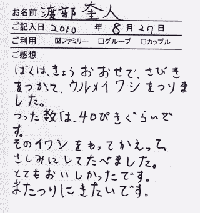 お名前 渡部 奎人
ご記入日 2010 年 8 月 27 日
ご利用 ☑ファミリー □グループ □カップル
ご感想
ぼくは、きょうおおせで、さびき
をつかって、ウルメイワシをつりま
した。
つった数は、40ぴきぐらいで
す。
そのイワシをもってかえって、
さしみにしてたべました。
とてもおいしかったです。
またつりにきたいです。